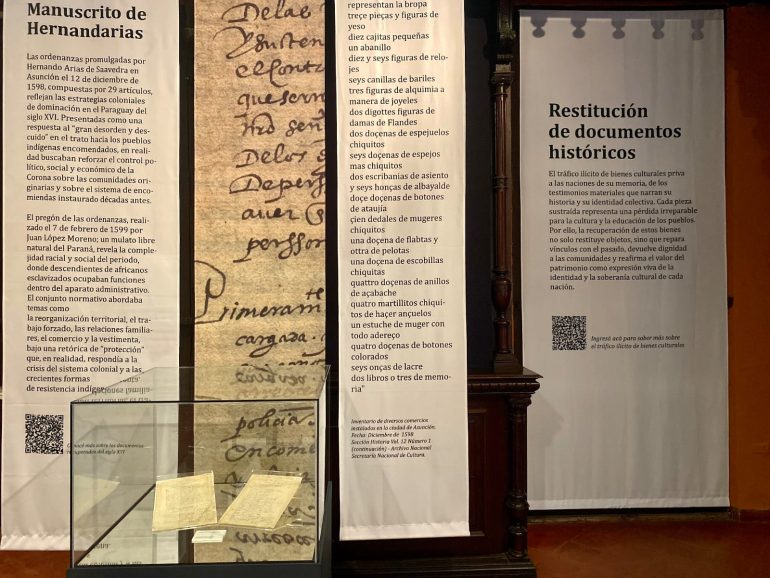 Manuscrito de
Hernandarias
Las ordenanzas promulgadas por
Hernando Arias de Saavedra en
Asunción el 12 de diciembre de
1598, compuestas por 29 artículos,
reflejan las estrategias coloniales
de dominación en el Paraguay del
siglo XVI. Presentadas como una
respuesta al "gran desorden y des-
cuido" en el trato hacia los pueblos
indígenas encomendados, en reali-
dad buscaban reforzar el control po-
lítico, social y económico de la
Corona sobre las comunidades ori-
ginarias y sobre el sistema de enco-
miendas instaurado décadas antes.
El pregón de las ordenanzas, reali-
zado el 7 de febrero de 1599 por
Juan López Moreno; un mulato libre
natural del Paraná, revela la comple-
jidad racial y social del periodo,
donde descendientes de africanos
esclavizados ocupaban funciones
dentro del aparato administrativo.
El conjunto normativo abordaba
temas como
la reorganización territorial, el tra-
bajo forzado, las relaciones familia-
res, el comercio y la vestimenta,
bajo una retórica de "protección"
que, en realidad, respondía a la
crisis del sistema colonial y a las
crecientes formas
de resistencia
más sobre los documentos
recuperados del siglo XVI
Delas
el Cont
que serv
Delos
Deperss
aver
persson
Primeramte
cargada
policia
encome
representan la bropa
treçe pieças y figuras de
yeso
diez cajitas pequeñas
un abanillo
diez y seys figuras de relo-
jes
seys canillas de bariles
tres figuras de alquimia a
manera de joyeles
dos digottes figuras de
damas de Flandes
dos doçenas de espejuelos
chiquitos
seys doçenas de espejos
mas chiquitos
dos escribanias de asiento
y seys honças de albayalde
doçe doçenas de botones
de ataujía
çien dedales de mugeres
chiquitos
una doçena de flabtas y
ottra de pelotas
una doçena de escobillas
chiquitas
quattro doçenas de anillos
de açabache
quatro martillitos chiqui-
tos de haçer ançuelos
un estuche de muger con
todo adereço
quatro doçenas de botones
colorados
seys onças de lacre
dos libros o tres de memo-
ria"
Inventario de diversos comercios
instalados en la ciudad de Asunción.
Fecha: Diciembre de 1598
Sección Historia Vol. 12 Número 1
(continuación) - Archivo Nacional
Secretaría Nacional de Cultura.
Restitución
de documentos
históricos
El tráfico ilícito de bienes culturales priva
a las naciones de su memoria, de los
testimonios materiales que narran su
historia y su identidad colectiva. Cada pieza
sustraída representa una pérdida irreparable
para la cultura y la educación de los pueblos.
Por ello, la recuperación de estos bienes
no solo restituye objetos, sino que repara
vínculos con el pasado, devuelve dignidad
a las comunidades y reafirma el valor del
patrimonio como expresión viva de la
identidad y la soberanía cultural de cada
nación.
Ingresá acá para saber más sobre
el tráfico ilícito de bienes culturales